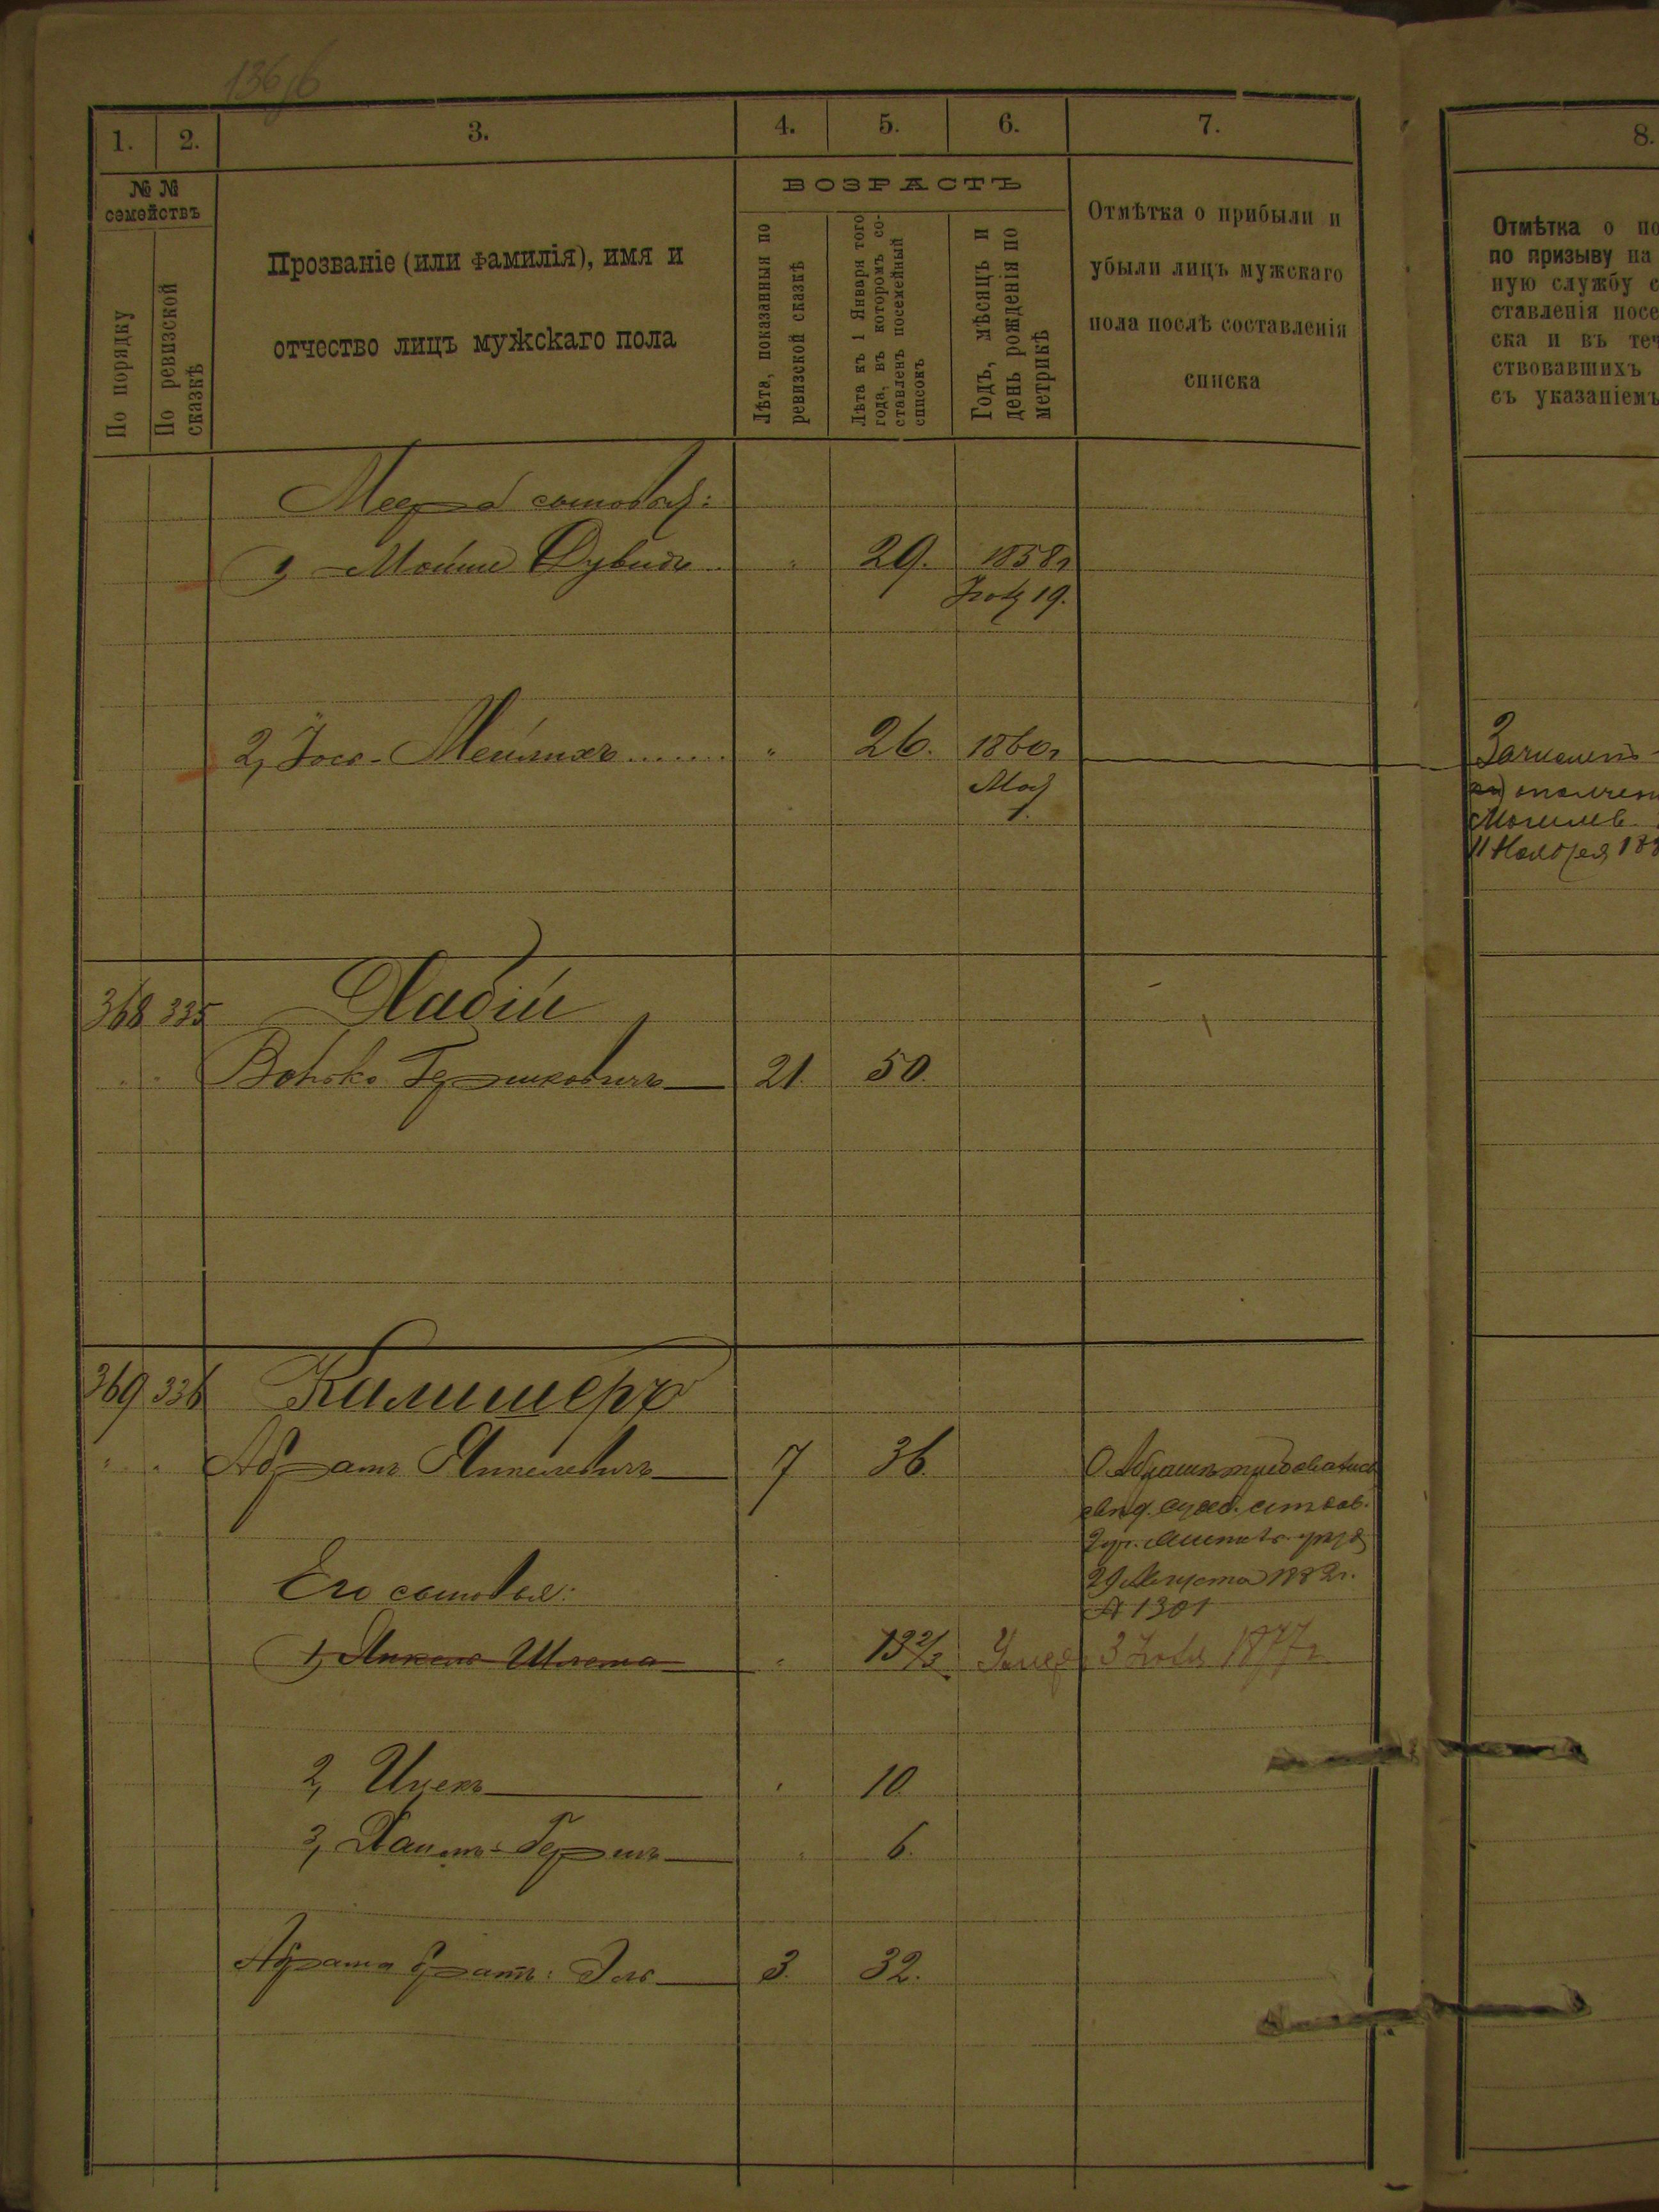 136/б
1. 2. 3. 4. 5. 6. 7.
№ №
семействъ
По порядку
По ревизской
сказкѣ
Прозваніе (или фамилія), имя и
отчество лицъ мужскаго пола
ВОЗРАСТЪ
Лѣта, показанныя по
ревизской сказкѣ
Лѣта къ 1 Января того
года, въ которомъ со-
ставленъ посемейный
списокъ
Годъ, мѣсяцъ и
день рожденія по
метрикѣ
Отмѣтка о прибыли и
убыли лицъ мужскаго
пола послѣ составленія
списка
Меера сыновья:
1, Мойше Дувидъ " 29. 1858г
19.
2, Іось-Мейлихъ....... " 26. 1860г
Мая
1.
368 335 Хабій
" " Волько Гершковичъ 21. 50.
369 336 Калишеръ
" " Абрамъ Янкелевичъ 7 36.
О Абрамѣ
29 Августа 1882г.
№ 1301
Его сыновья:
1, Янкель Шлема " 13 2/3 Умеръ 3 1877г
2, Ицекъ " 10.
3, Хаимъ-Гершъ " 6.
Абрама братъ: Эль 3. 32.
8.
Отмѣтка о по
по призыву на
ную службу с
ставленія посе
ска и въ теч
ствовавшихъ
съ указаніемъ
Зачисленъ
ополчен
Могилев
11 Ноября 188